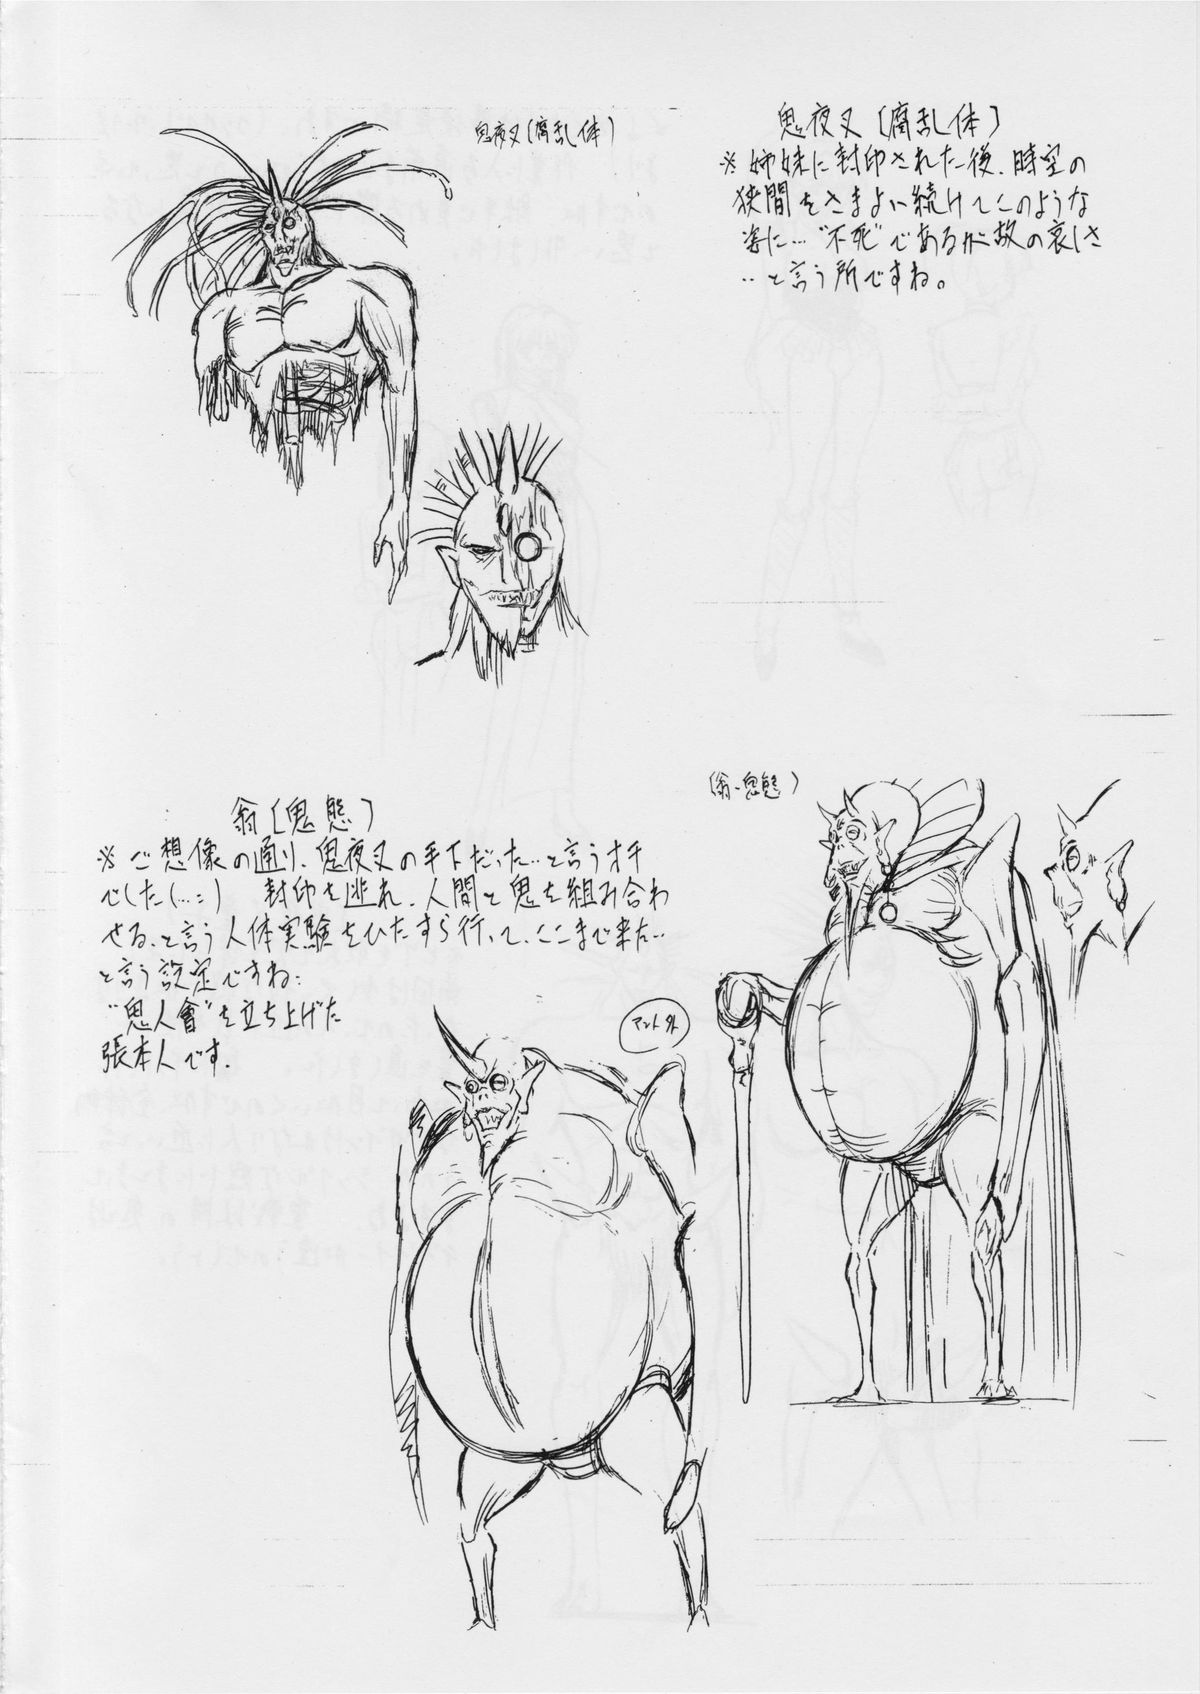 鬼夜叉(腐乱体)
鬼夜叉[腐乱体]
※姉妹に封印された後、時空の
狭間をさまよい続けてこのような
姿に…"不死"であるが故の哀しさ
…と言う所ですね。
翁[鬼態]
※ご想像の通り、鬼夜叉の手下だった…と言うオチ
でした(…:) 封印を逃れ、人間と鬼を組み合わ
せる、と言う人体実験をひたすら行って、ここまで来た…
と言う設定ですね:
"鬼人會"を立ち上げた
張本人です.
(翁・鬼態)
マント外